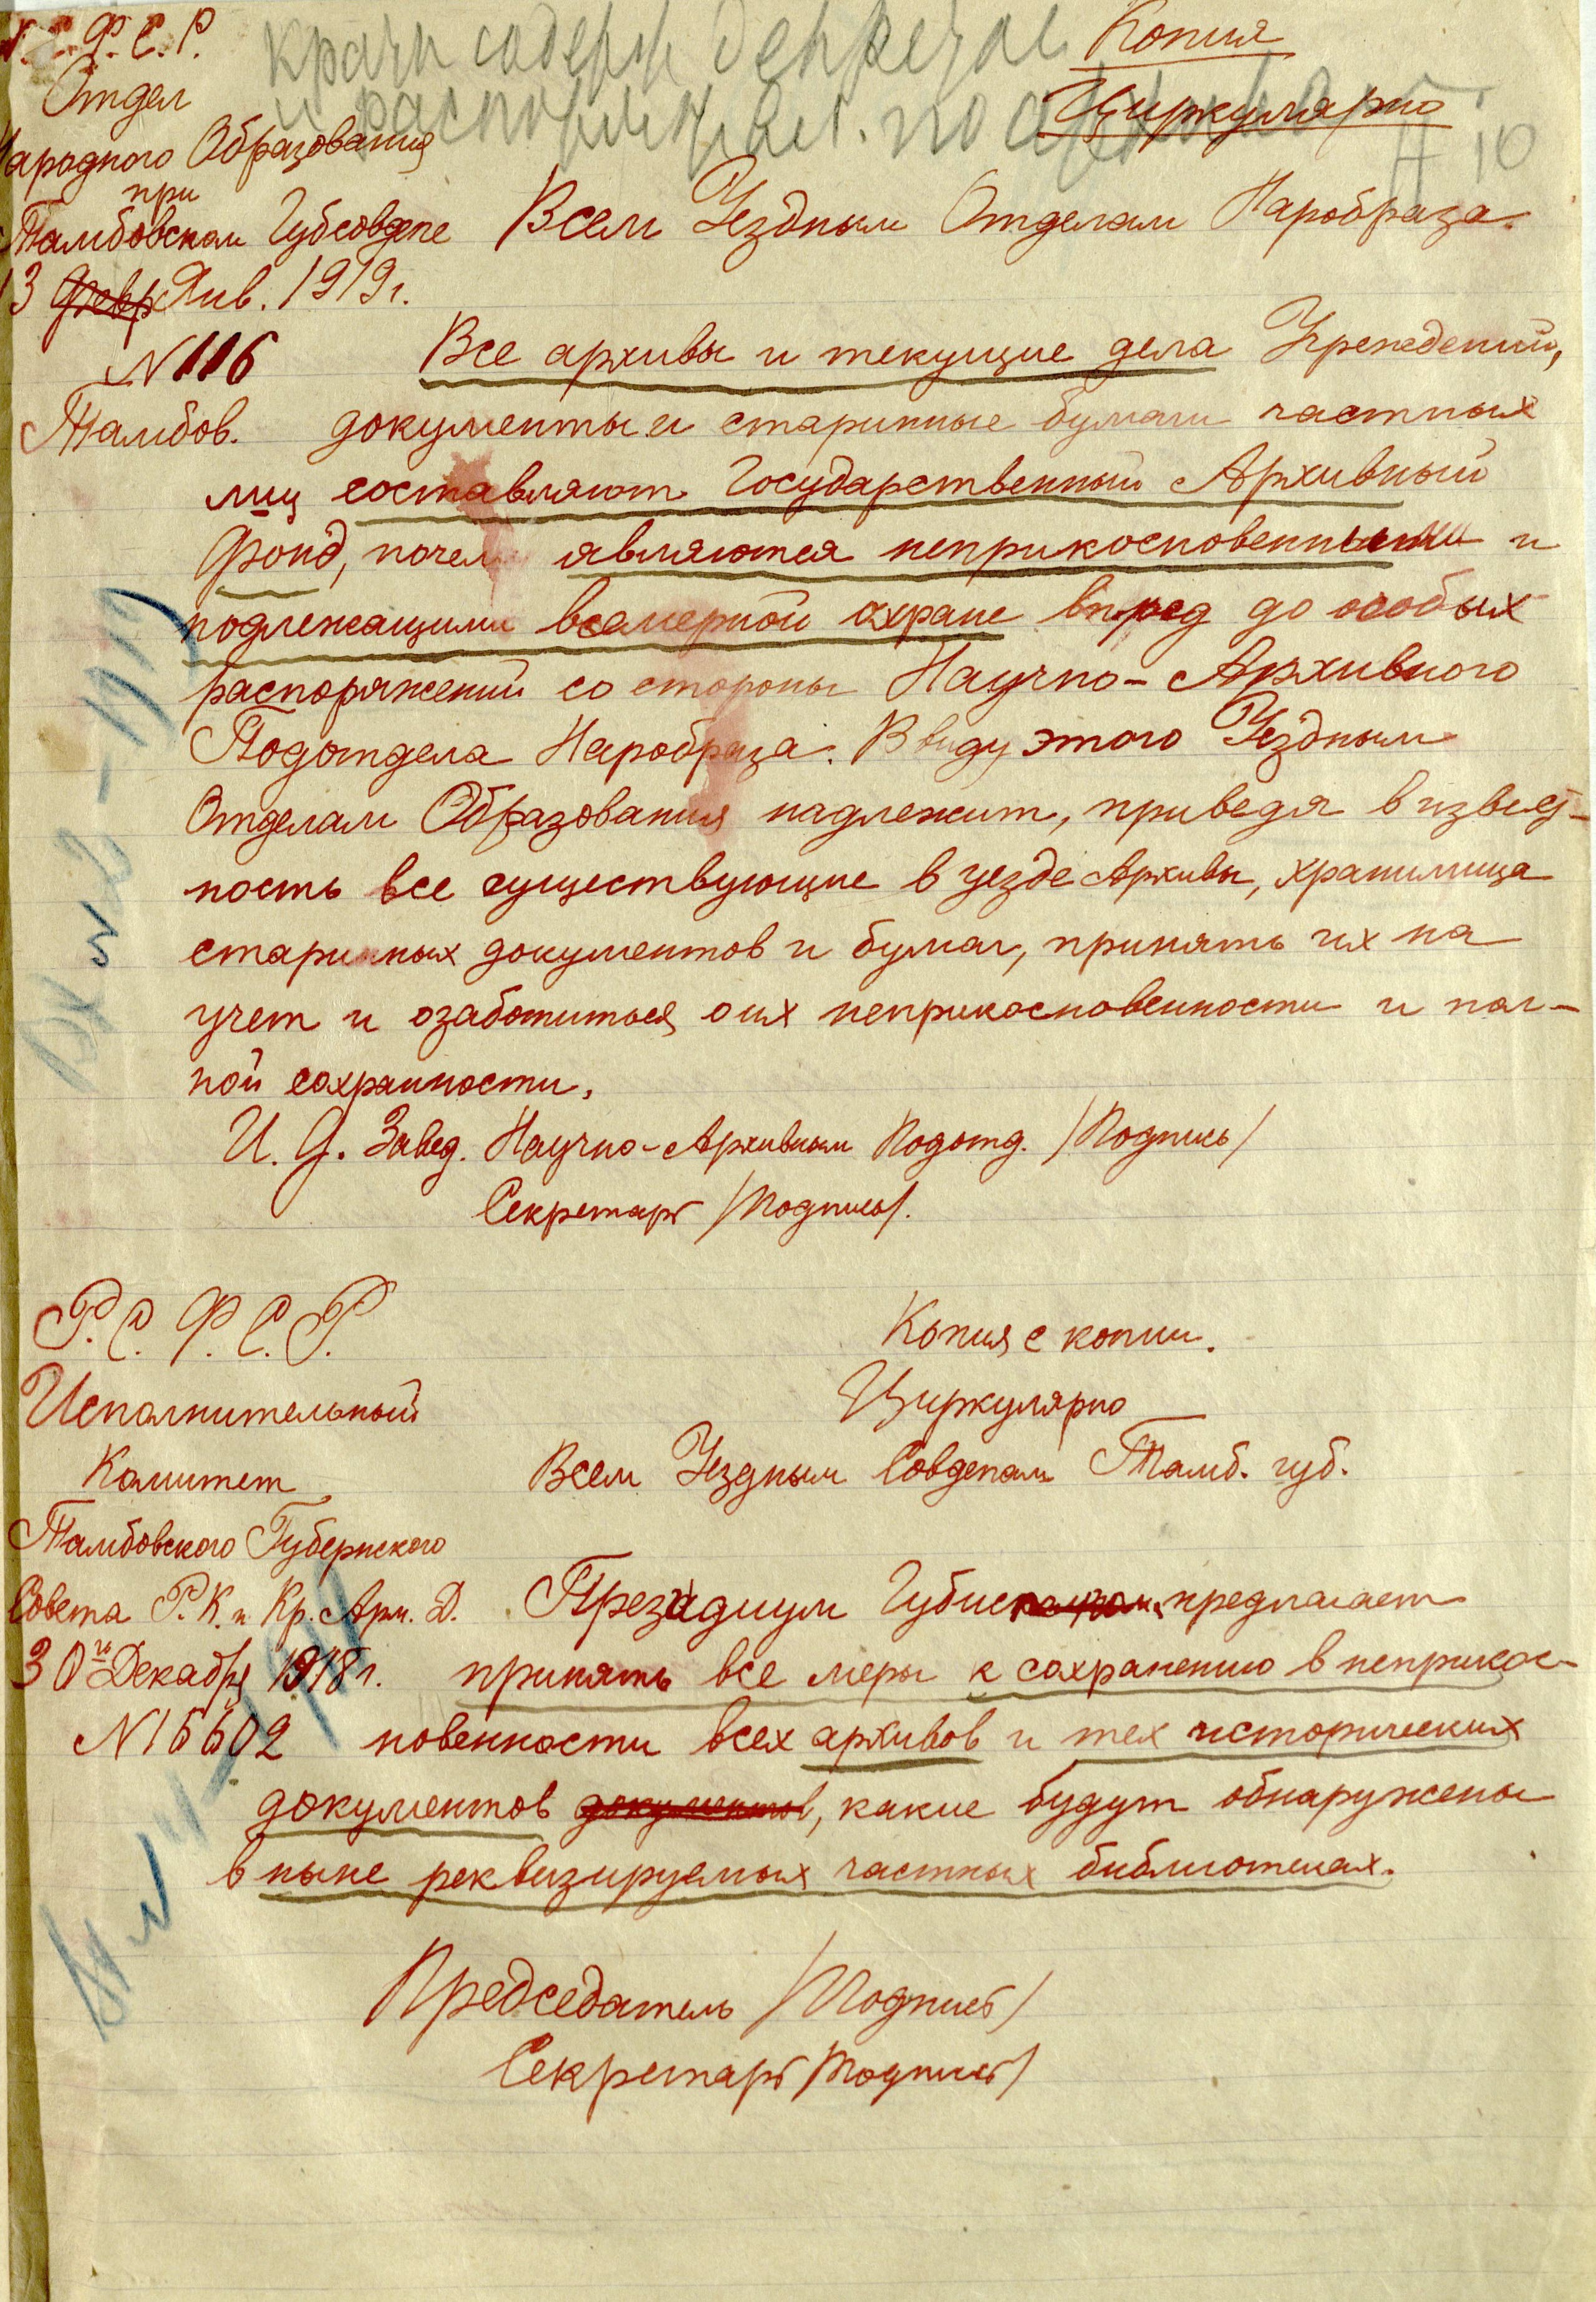 Р. С. Ф. С. Р.
Отдел
Народного Образования
при
Тамбовском Губсовдепе
13 Февр Янв. 1919 г.
N 116
Тамбов.
Копия
Циркулярно
Всем Уездным Отделам Наробраза.
Все архивы и текущие дела Учреждений,
документы и старинные бумаги частных
лиц составляют Государственный Архивный
фонд, почему являются неприкосновенными и
подлежащими всемерной охране впред до особых
распоряжений со стороны Научно-Архивного
Подотдела Наробраза. В виду этого Уездным
Отделам Образования надлежит, приведя в извест-
ность все существующие в уезде Архивы, хранилища
старинных документов и бумаг, принять их на
учет и озаботиться о их неприкосновенности и пол-
ной сохранности.
И. Д. Завед. Научно-Архивным Подотд. /Подпись/
Секретарь /Подпись/.
Р. С. Ф. С. Р.
Исполнительный
Комитет
Тамбовского Губернского
Совета Р. К. и Кр. Арм. Д.
30го Декабря 1918 г.
N 15602
Копия с копии.
Циркулярно
Всем Уездным Совдепам Тамб. губ.
Президиум Губис предлагает
принять все меры к сохранению в неприкос-
новенности всех архивов и тех исторических
документов документов, какие будут обнаружены
в ныне реквизируемых частных библиотеках.
Председатель /Подпись/
Секретарь /Подпись/